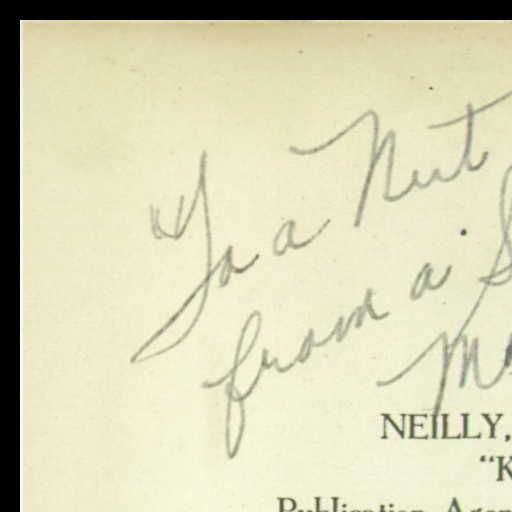 To a Nut
from a S
M
NEILLY,
"K
Publication Agen